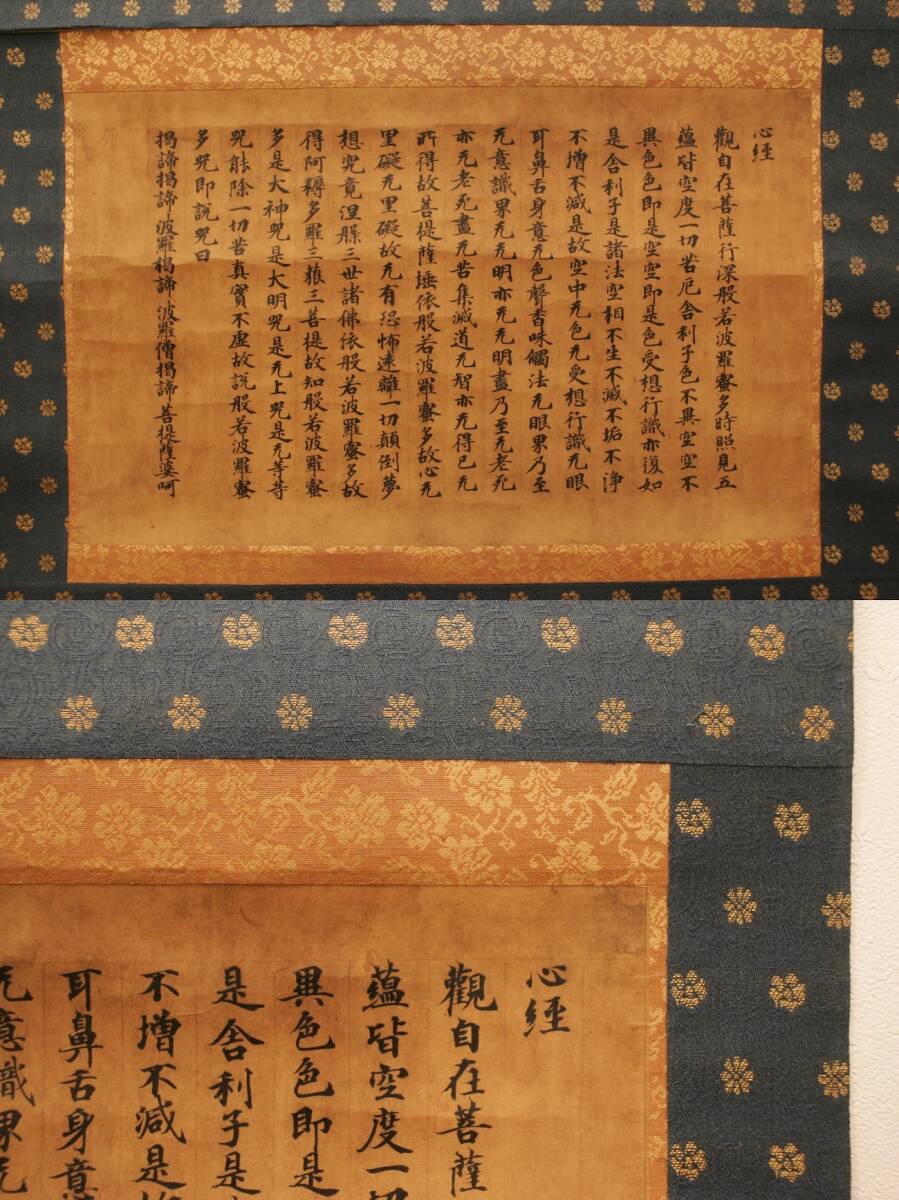 心經
觀自在菩薩行深般若波羅蜜多時照見五
蘊皆空度一切苦厄舍利子色不異空空不
異色色即是空空即是色受想行識亦復如
是舍利子是諸法空相不生不滅不垢不淨
不增不減是故空中无色无受想行識无眼
耳鼻舌身意无色聲香味觸法无眼界乃至
无意識界无无明亦无无明盡乃至无老死
亦无老死盡无苦集滅道无智亦无得已无
所得故菩提薩埵依般若波羅蜜多故心无
罣礙无罣礙故无有恐怖遠離一切顛倒夢
想究竟涅槃三世諸佛依般若波羅蜜多故
得阿耨多羅三藐三菩提故知般若波羅蜜
多是大神咒是大明咒是无上咒是无等等
咒能除一切苦真實不虛故說般若波羅蜜
多咒即說咒曰
揭諦揭諦 波羅揭諦 波羅僧揭諦 菩提薩婆呵
心經
觀自在菩薩
蘊皆空度一切
異色色即是
是舍利子是
不增不減是
耳鼻舌身意
无意識界无